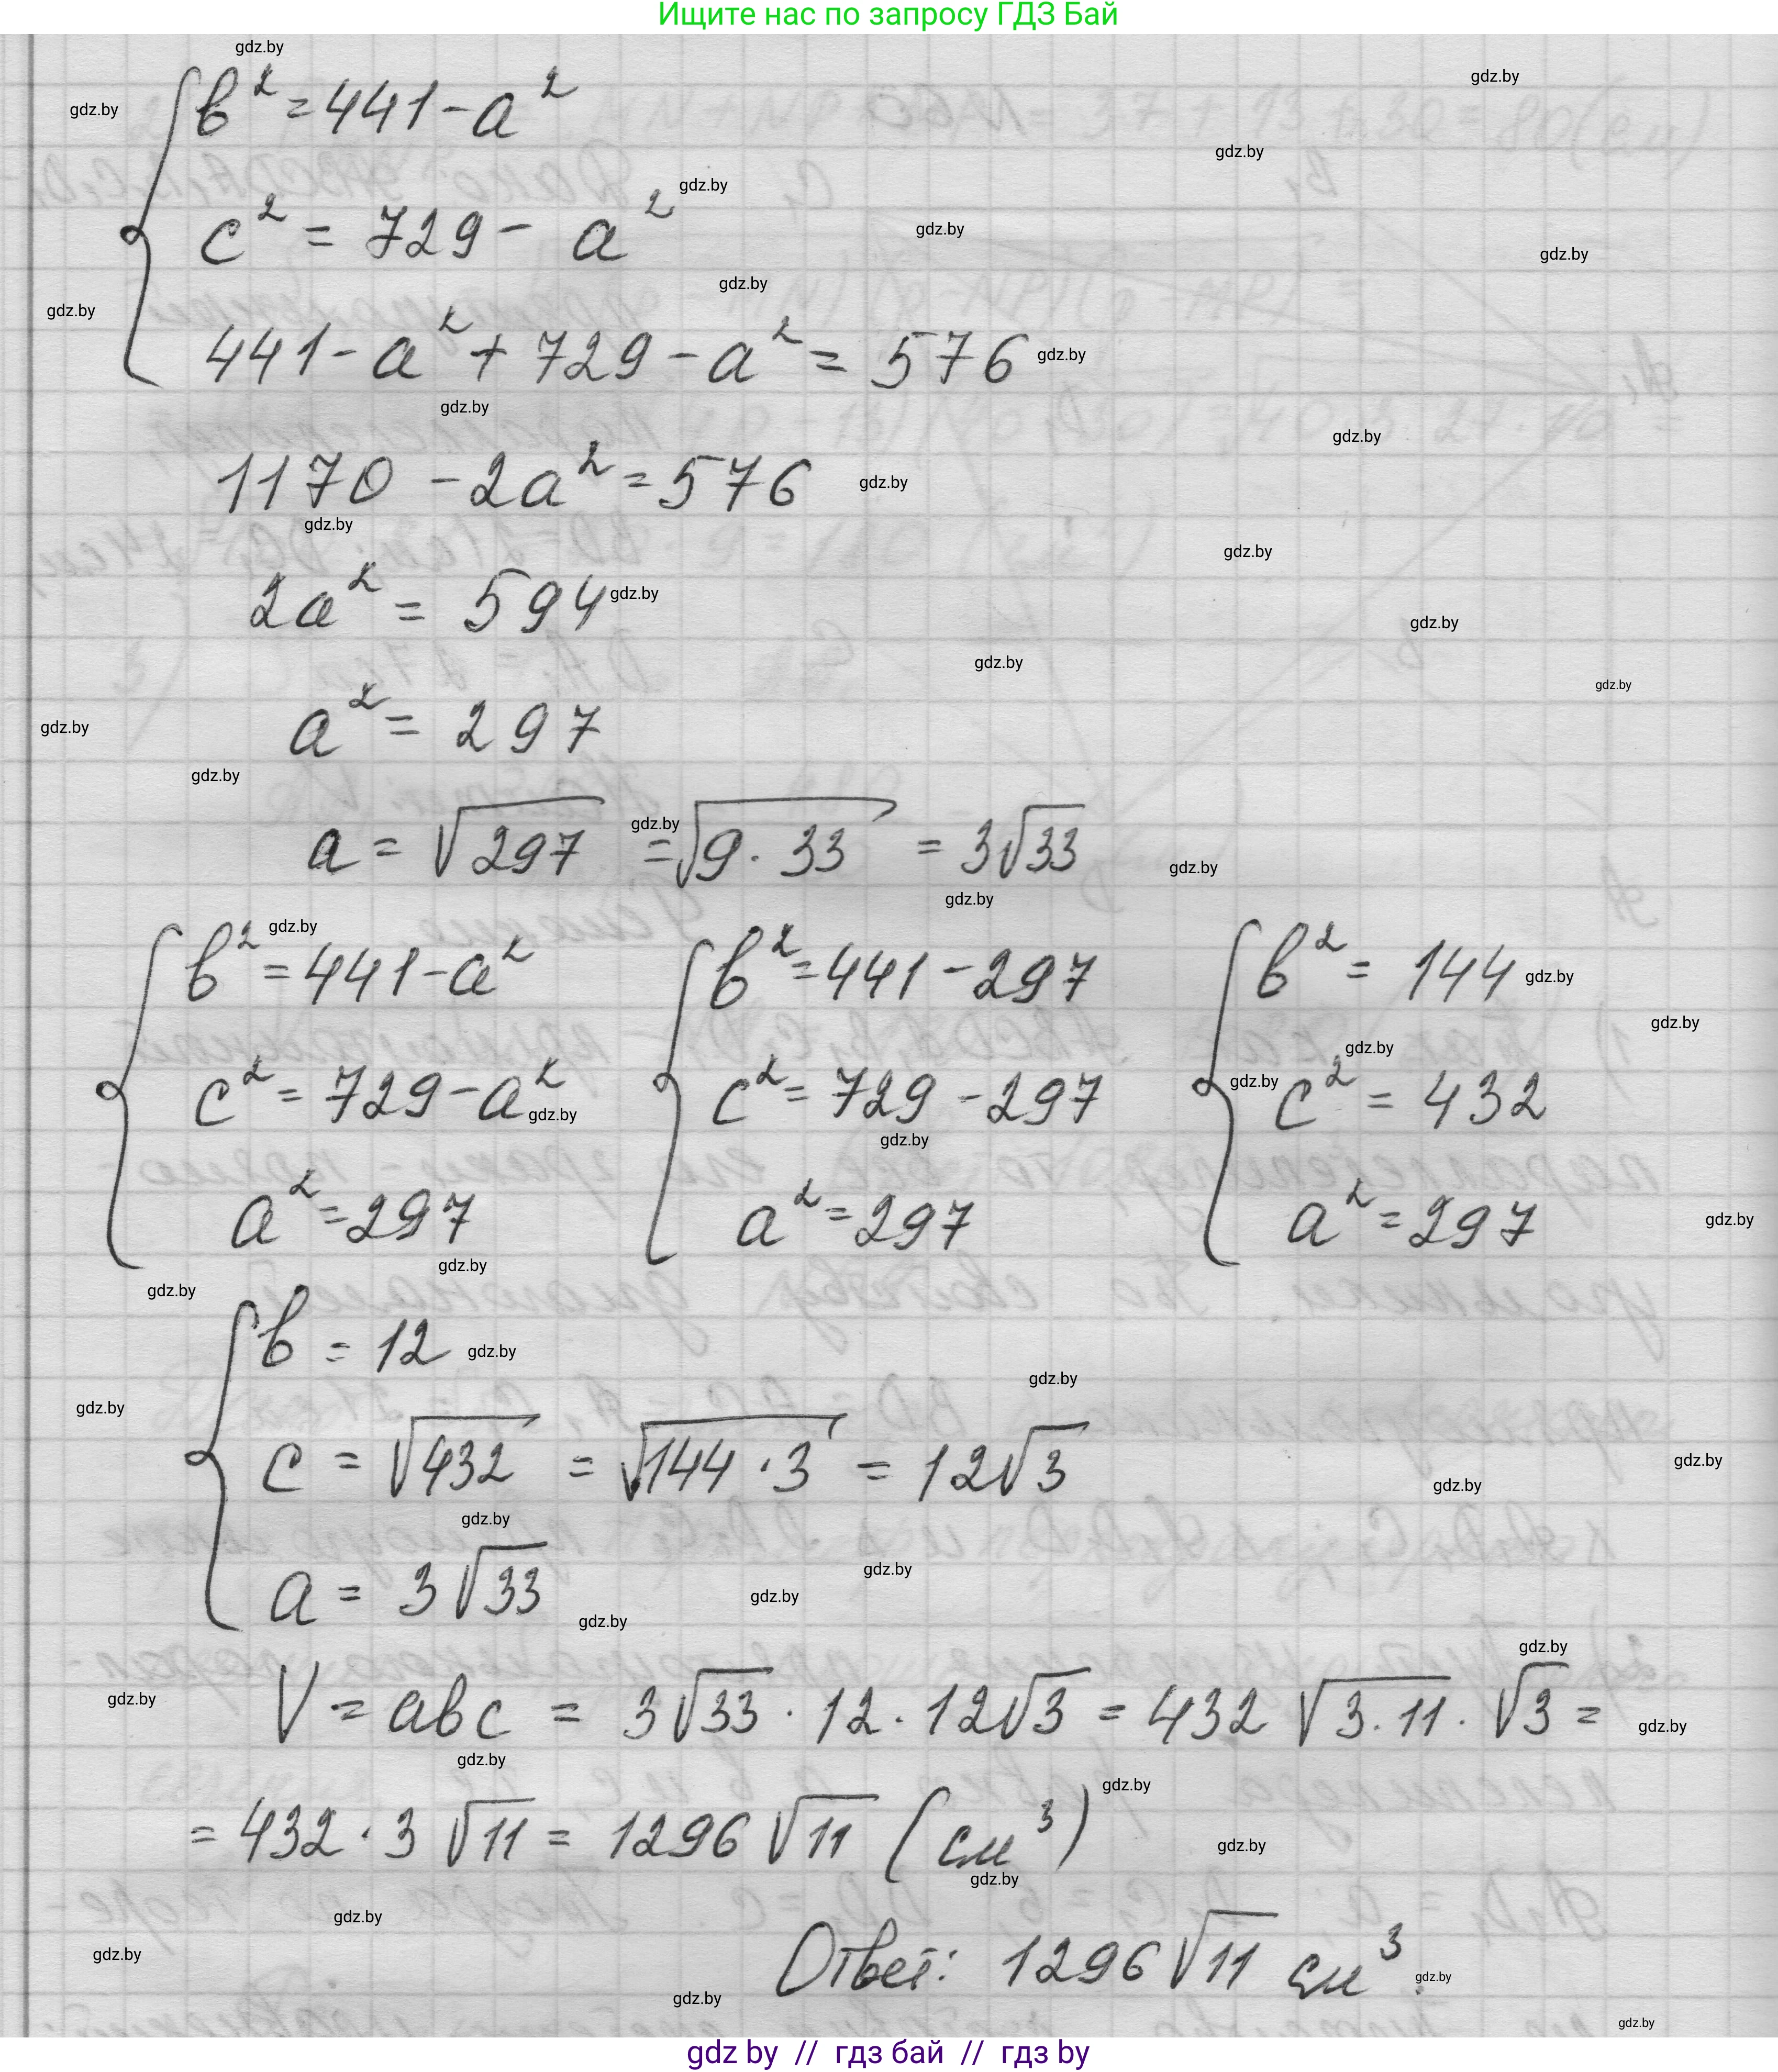 Ищите нас по запросу ГДЗ Бай
в² = 441 - a²
c² = 729 - a²
441 - a² + 729 - a² = 576
1170 - 2a² = 576
2a² = 594
a² = 297
a = √297 = √9·33 = 3√33
в² = 441 - a² в² = 441 - 297 в² = 144
c² = 729 - a² c² = 729 - 297 c² = 432
a² = 297 a² = 297 a² = 297
в = 12
c = √432 = √144·3 = 12√3
a = 3√33
V = aвc = 3√33 · 12 · 12√3 = 432 √3·11 · √3 =
= 432 · 3 √11 = 1296 √11 (см³)
Ответ: 1296 √11 см³.
gdz by // гдз бай // гдз by